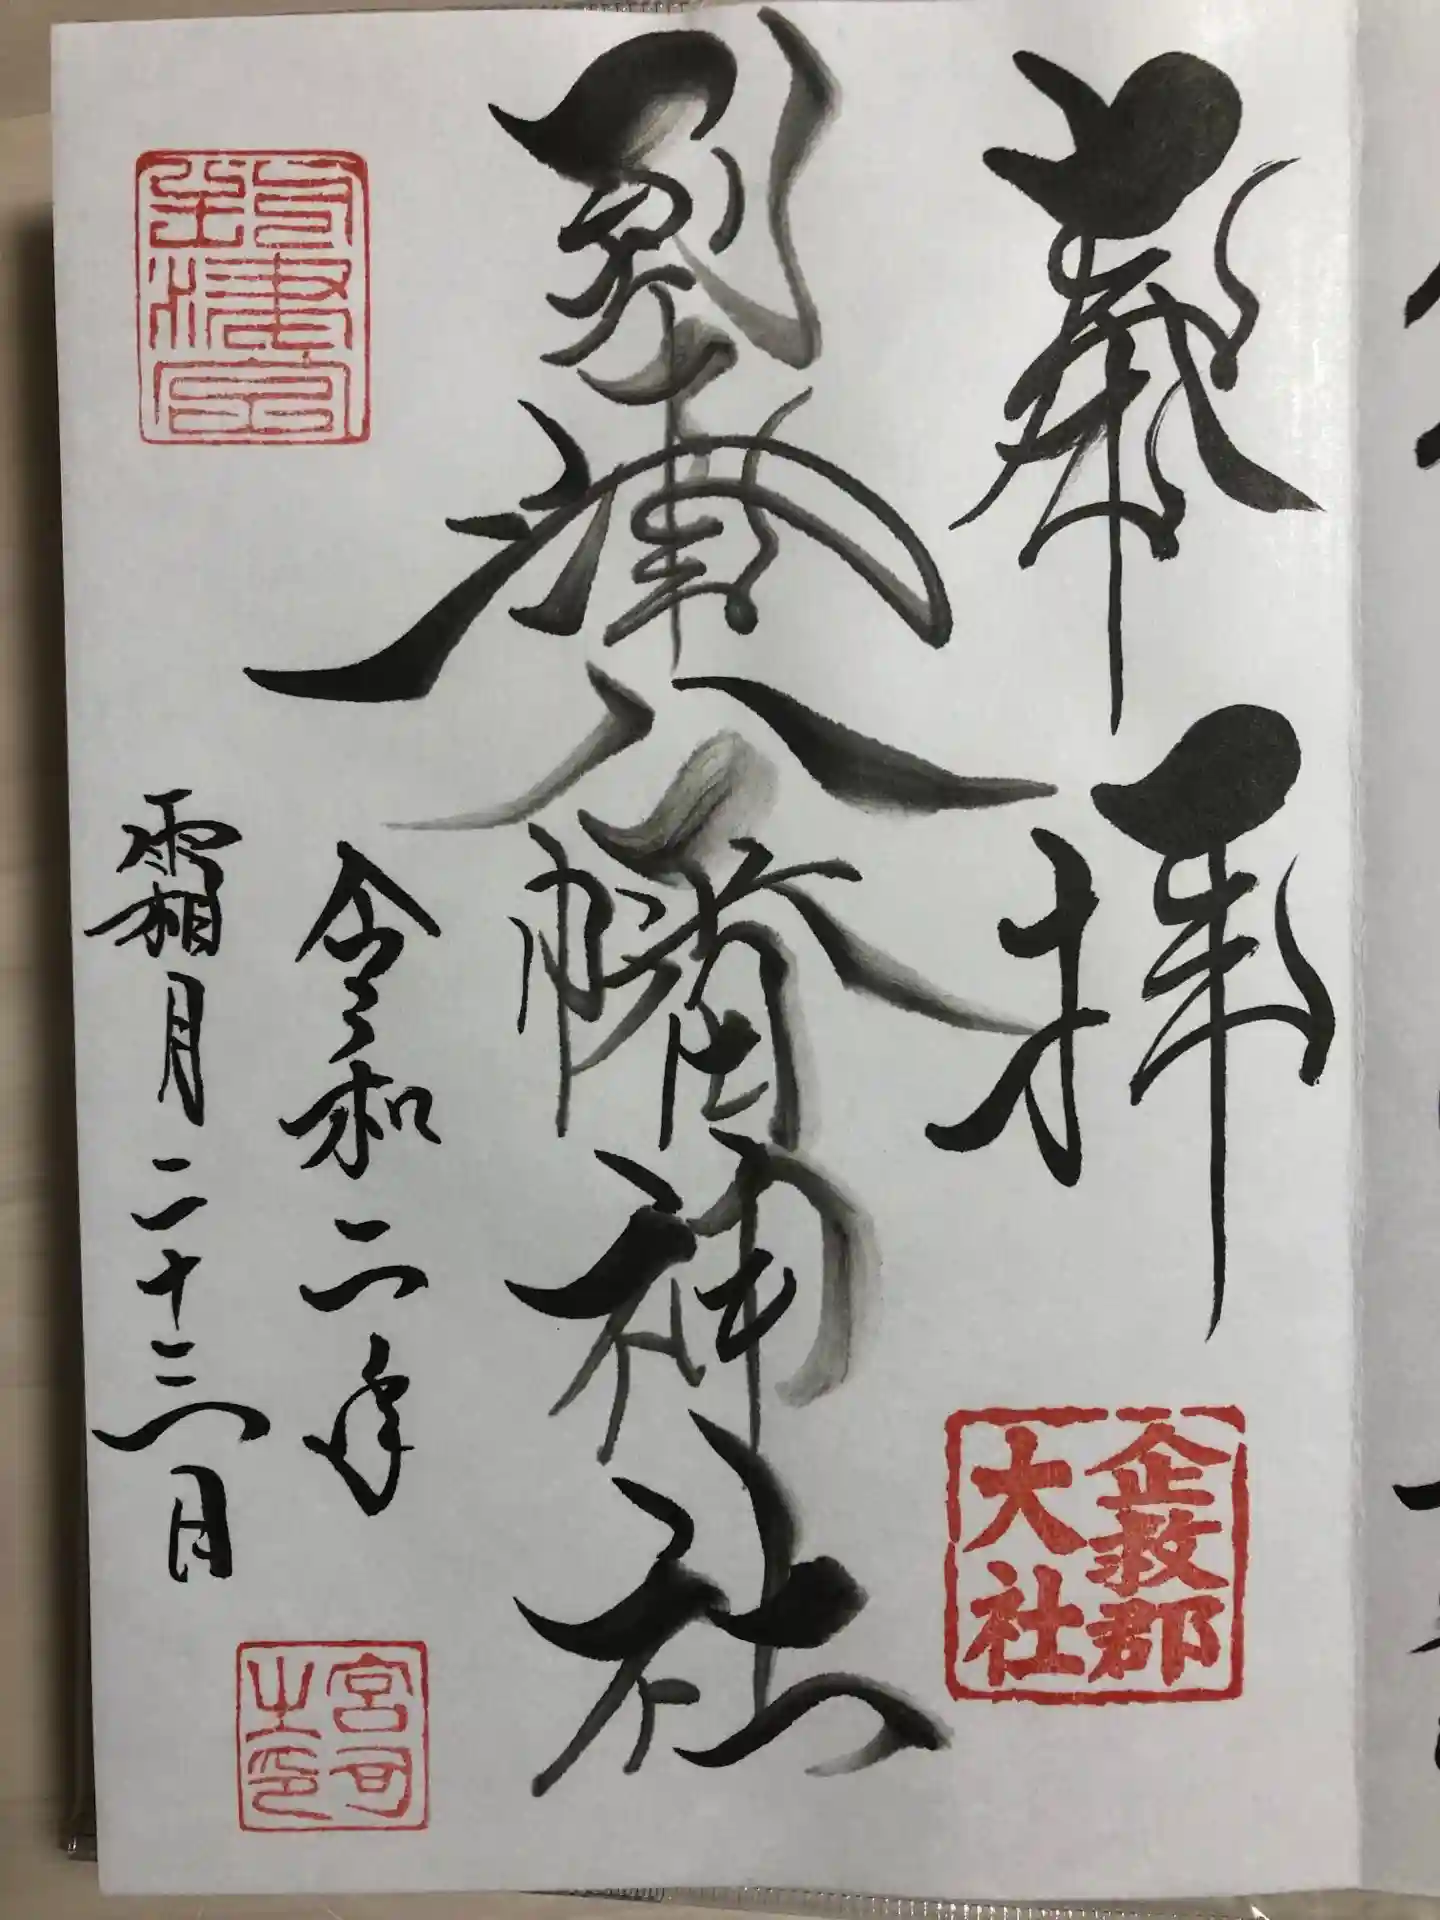 奉拝
企救郡
大社
到津八幡神社
令和二年
霜月二十三日
宮司
之印